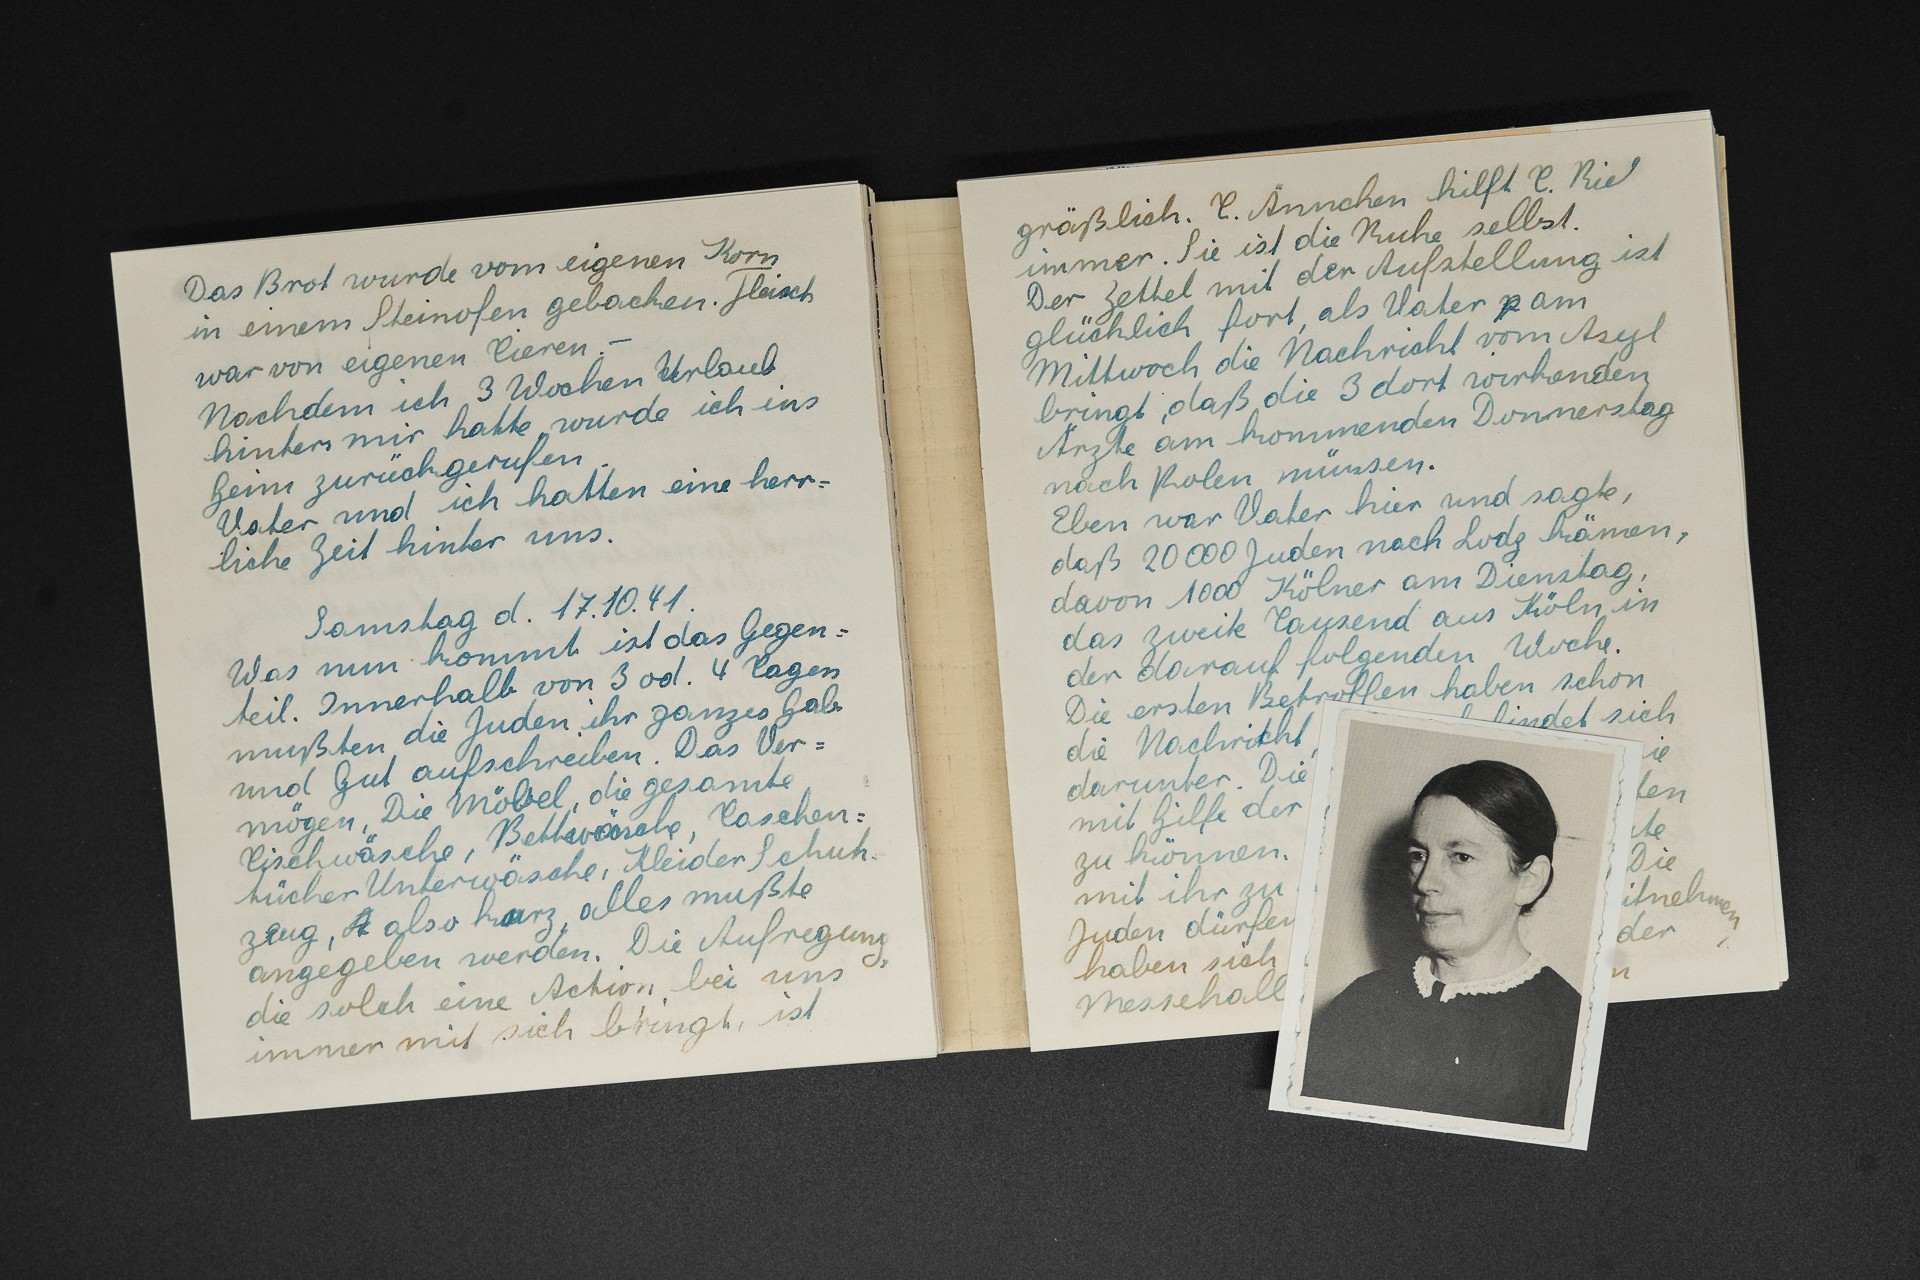 Das Brot wurde vom eigenen Korn
in einem Steinofen gebacken. Fleisch
war von eigenen Tieren.–
Nachdem ich 3 Wochen Urlaub
hinter mir hatte wurde ich ins
Heim zurückgerufen.
Vater und ich hatten eine herr=
liche Zeit hinter uns.
Samstag d. 17.10.41.
Was nun kommt ist das Gegen=
teil. Innerhalb von 3 od. 4 Tagen
mußten die Juden ihr ganzes Hab
und Gut aufschreiben. Das Ver=
mögen, Die Möbel, die gesamte
Tischwäsche, Bettwäsche, Taschen=
tücher Unterwäsche, Kleider Schuh-
zeug, also kurz, alles mußte
angegeben werden. Die Aufregung,
die solch eine Action bei uns
immer mit sich bringt, ist
gräßlich. T. Ännchen hilft T.
immer. Sie ist die Ruhe selbst.
Der Zettel mit der Aufstellung ist
glücklich fort, als Vater am
Mittwoch die Nachricht vom Asyl
bringt, daß die 3 dort wirkenden
Ärzte am kommenden Donnerstag
nach Polen müssen.
Eben war Vater hier und sagte,
daß 20000 Juden nach Lodz kämen,
davon 1000 Kölner am Dienstag,
das zweite Tausend aus Köln in
der darauf folgenden Woche.
Die ersten Betroffen haben schon
die Nachricht, findet sich
darunter. Die
mit Hilfe der
zu können.
mit ihr zu Die
Juden dürfen
haben sich der
Messehall